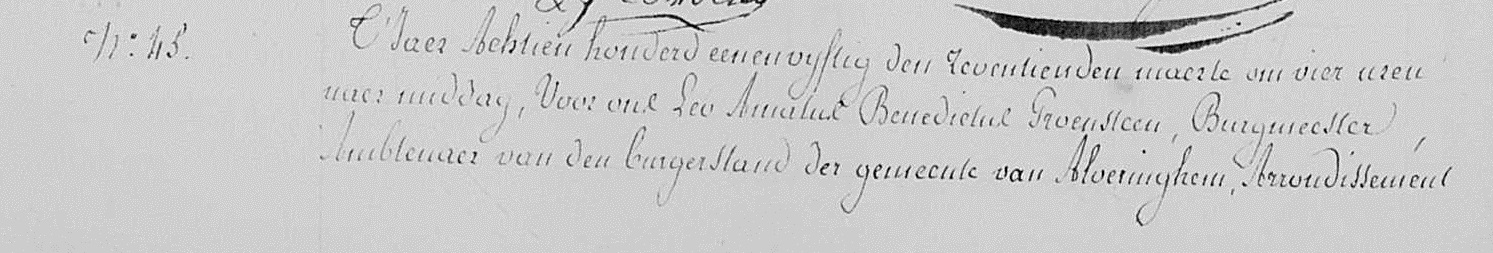 N.º 45. T'Jaer Achtien honderd eenenvyftig den Zeventienden maerte om vier uren
naer middag, Voor ons Leo Amatus Benedictus Groensteen, Burgmeester,
Ambtenaer van den burgerstand der gemeente van Alveringhem, Arrondissement